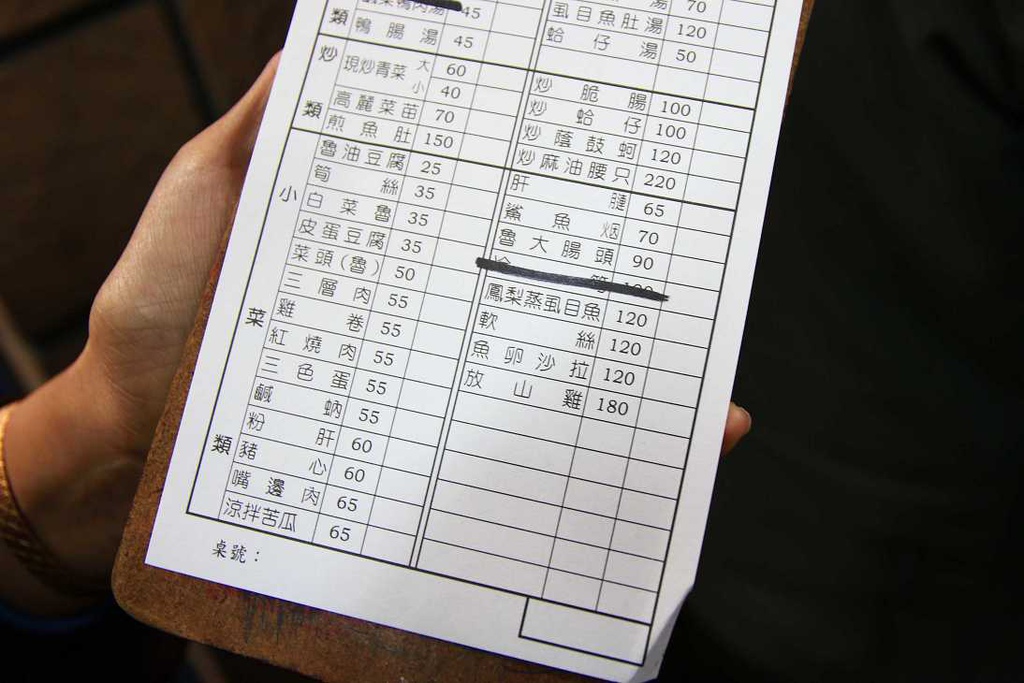 類
45
鴨腸湯 45
炒類
現炒青菜 大 60
小 40
高麗菜苗 70
煎魚肚 150
小菜類
魯油豆腐 25
筍絲 35
白菜魯 35
皮蛋豆腐 35
菜頭(魯) 50
三層肉 55
雞卷 55
紅燒肉 55
三色蛋 55
鹹蚋 55
粉肝 60
豬心 60
嘴邊肉 65
涼拌苦瓜 65
湯 70
虱目魚肚湯 120
蛤仔湯 50
炒脆腸 100
炒蛤仔 100
炒蔭鼓蚵 120
炒麻油腰只 220
肝腱 65
鯊魚烟 70
魯大腸頭 90
鳳梨蒸虱目魚 120
軟絲 120
魚卵沙拉 120
放山雞 180
桌號：